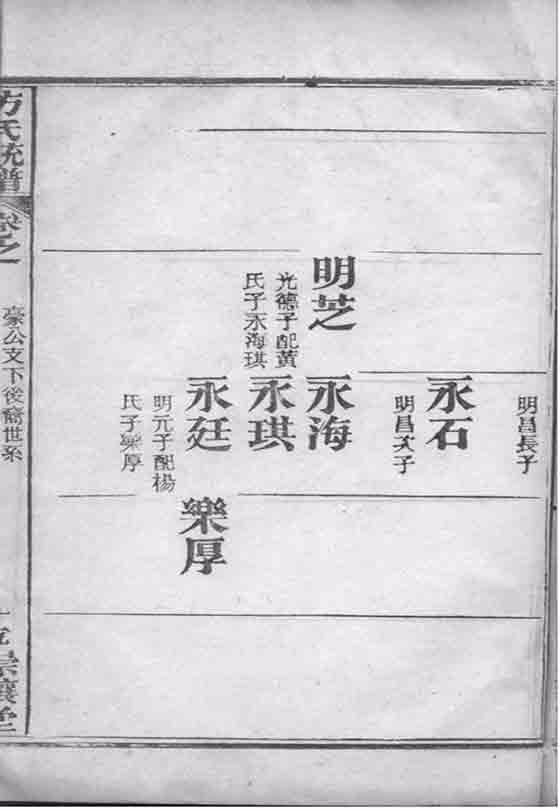 明昌長子
永石
明昌次子
明芝
光德子配黄
氏子永海琪
永海
永琪
永廷
明元子配楊
氏子樂厚
樂厚
方氏統譜
卷之
豪公支下後裔世系